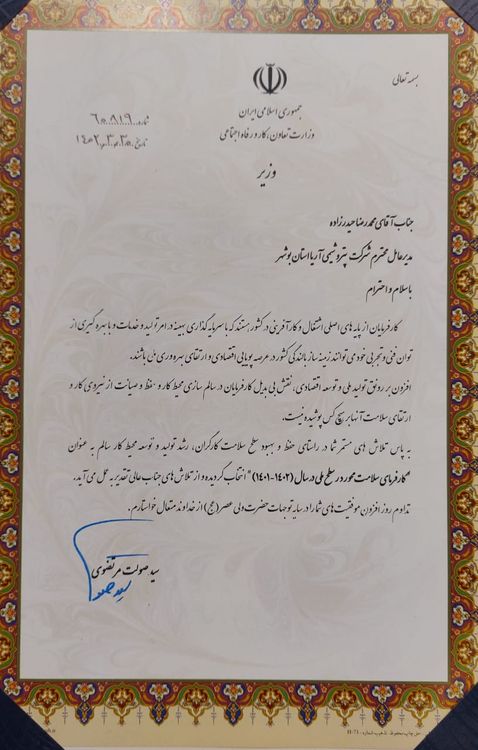 بسمه تعالی
جمهوری اسلامی ایران
وزارت تعاون، کار و رفاه اجتماعی
وزیر
شماره: ۶۰۸۱۹
تاریخ: ۱۴۰۲،۳،۳۰
جناب آقای محمدرضا حیدرزاده
مدیرعامل محترم شرکت پتروشیمی آریا استان بوشهر
با سلام و احترام
کارفرمایان از پایه های اصلی اشتغال و کارآفرینی در کشور هستند که با سرمایه گذاری بهینه در امر تولید و خدمات و با بهره گیری از
توان فنی و تجربی خود می توانند زمینه ساز بالندگی کشور در عرصه پویایی اقتصادی و ارتقای بهره وری ملی باشند.
افزون بر رونق تولید ملی و توسعه اقتصادی، نقش بی بدیل کارفرمایان در سالم سازی محیط کار و حفظ و صیانت از نیروی کار و
ارتقای سلامت آنها بر هیچ کس پوشیده نیست.
به پاس تلاش های مستمر شما در راستای حفظ و بهبود سطح سلامت کارگران، رشد تولید و توسعه محیط کار سالم به عنوان
"کارفرمای سلامت محور در سطح ملی در سال (۱۴۰۲-۱۴۰۱)" انتخاب گردیده و از تلاش های جناب عالی تقدیر به عمل می آید.
تداوم روز افزون موفقیت های شما را در سایه توجهات حضرت ولی عصر (عج) از خداوند متعال خواستارم.
سید صولت مرتضوی